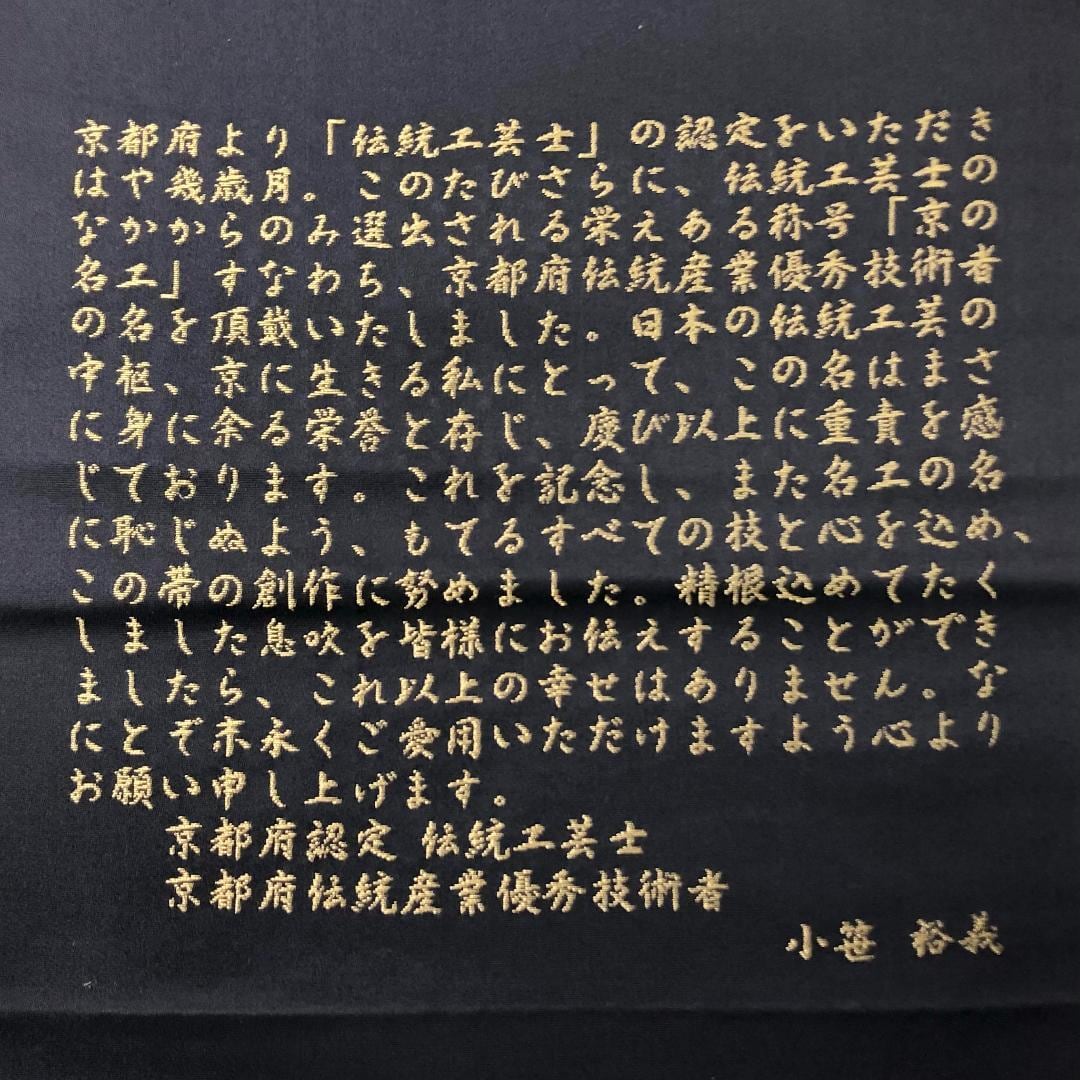 京都府より「伝統工芸士」の認定をいただき
はや幾歳月。このたびさらに、伝統工芸士の
なかからのみ選出される栄えある称号「京の
名工」すなわち、京都府伝統産業優秀技術者
の名を頂戴いたしました。日本の伝統工芸の
中枢、京に生きる私にとって、この名はまさ
に身に余る栄誉と存じ、慶び以上に重責を感
じております。これを記念し、また名工の名
に恥じぬよう、もてるすべての技と心を込め、
この帯の創作に努めました。精根込めてたく
しました息吹を皆様にお伝えすることができ
ましたら、これ以上の幸せはありません。な
にとぞ末永くご愛用いただけますよう心より
お願い申し上げます。
京都府認定 伝統工芸士
京都府伝統産業優秀技術者
小笹 裕義